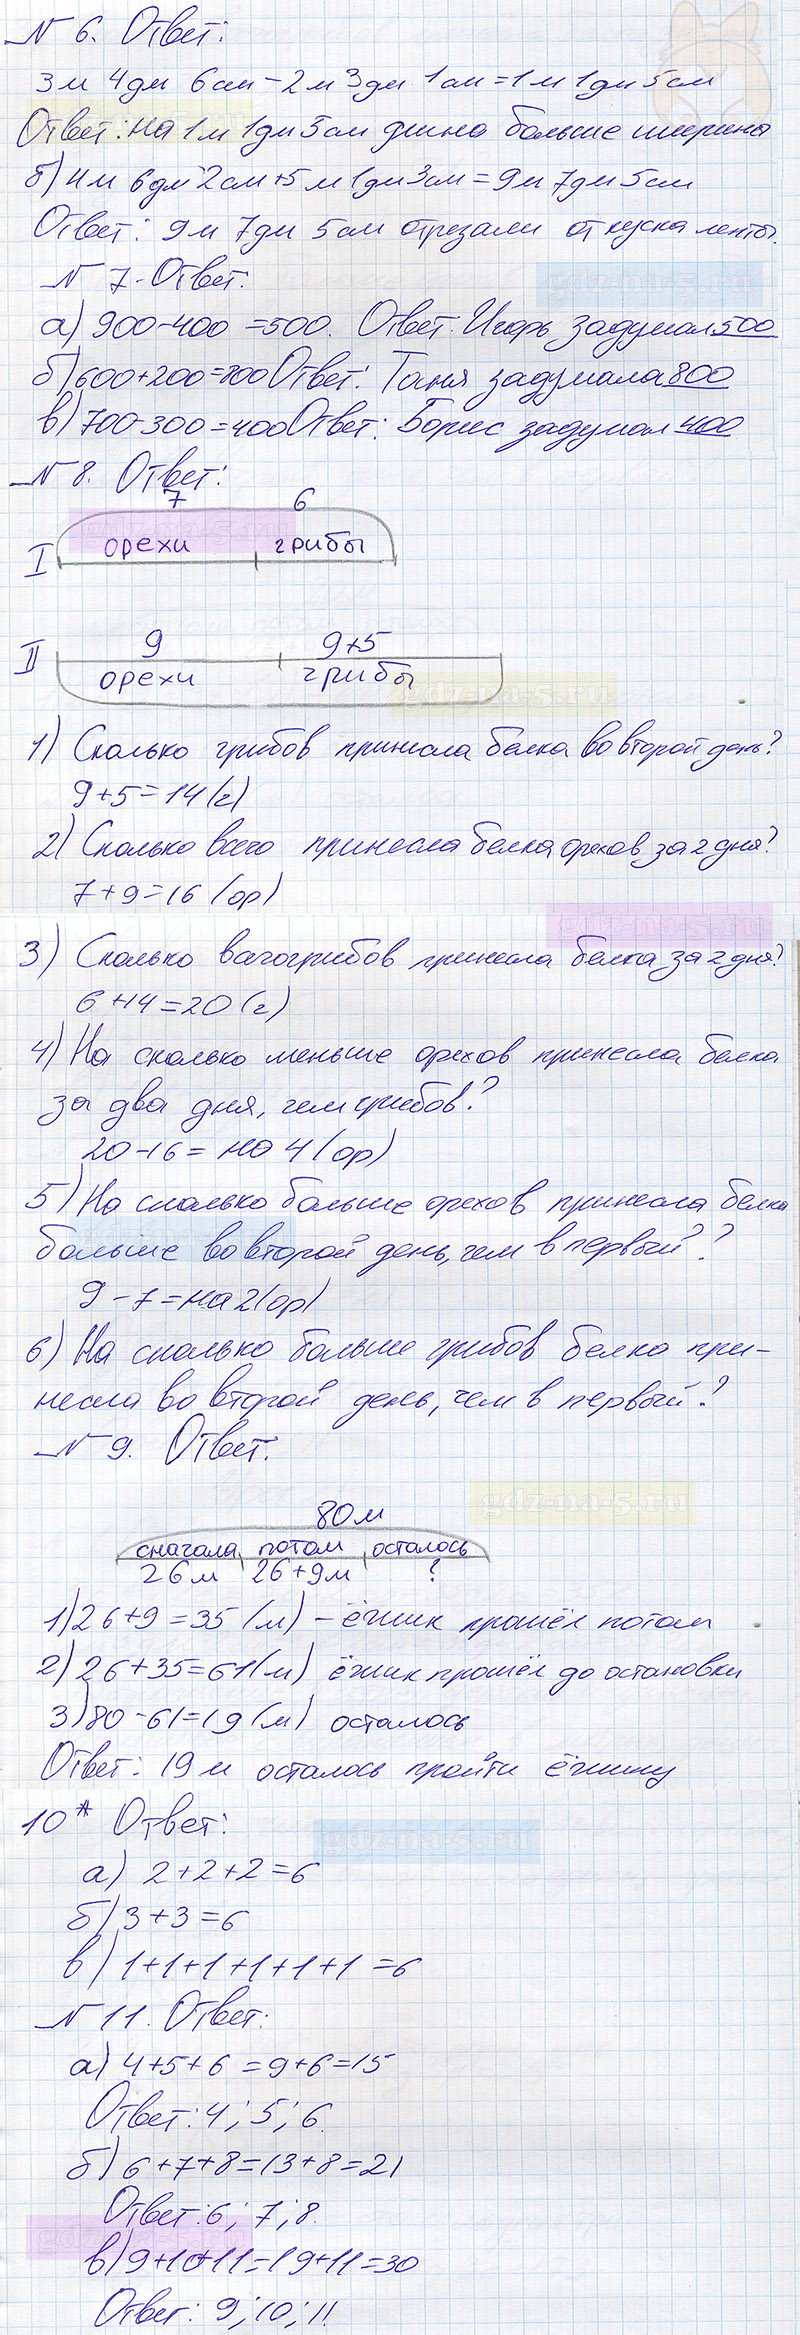 № 6. Ответ:
3м 4дм 6см - 2м 3дм 1см = 1м 1дм 5см
Ответ: на 1м 1дм 5см длина больше ширина
б) 4м 6дм 2см + 5м 1дм 3см = 9м 7дм 5см
Ответ: 9м 7дм 5см отрезали от куска ленты.
№ 7. Ответ:
а) 900-400 =500. Ответ: Игорь задумал 500
б) 600+200=800 Ответ: Таня задумала 800
в) 700-300=400 Ответ: Борис задумал 400
№ 8. Ответ:
7 6
gdz-na-5.ru
I орехи грибы
9 9+5
II орехи грибы
gdz-na-5.ru
1) Сколько грибов принесла белка во второй день?
9+5=14(г)
2) Сколько всего принесла белка орехов за 2 дня?
7+9=16 (ор)
gdz-na-5.ru
3) Сколько всего грибов принесла белка за 2 дня?
6+14=20(г)
4) На сколько меньше орехов принесла белка
за два дня, чем грибов?
20-16= на 4 (ор)
5) На сколько больше орехов принесла белка
больше во второй день, чем в первый?
9-7=на 2(ор)
6) На сколько больше грибов белка при-
несла во второй день, чем в первый?
№ 9. Ответ:
gdz-na-5.ru
80м
сначала потом осталось
26м 26+9м ?
1) 26+9=35 (м) - ёжик прошёл потом
2) 26+35=61(м) ёжик прошёл до остановки
3) 80-61=19(м) осталось
Ответ: 19м осталось пройти ёжику
10* Ответ:
gdz-na-5.ru
а) 2+2+2=6
б) 3+3=6
в) 1+1+1+1+1+1=6
№ 11. Ответ:
а) 4+5+6=9+6=15
Ответ: 4; 5; 6.
б) 6+7+8=13+8=21
Ответ: 6; 7; 8.
в) 9+10+11=19+11=30
Ответ: 9; 10; 11.